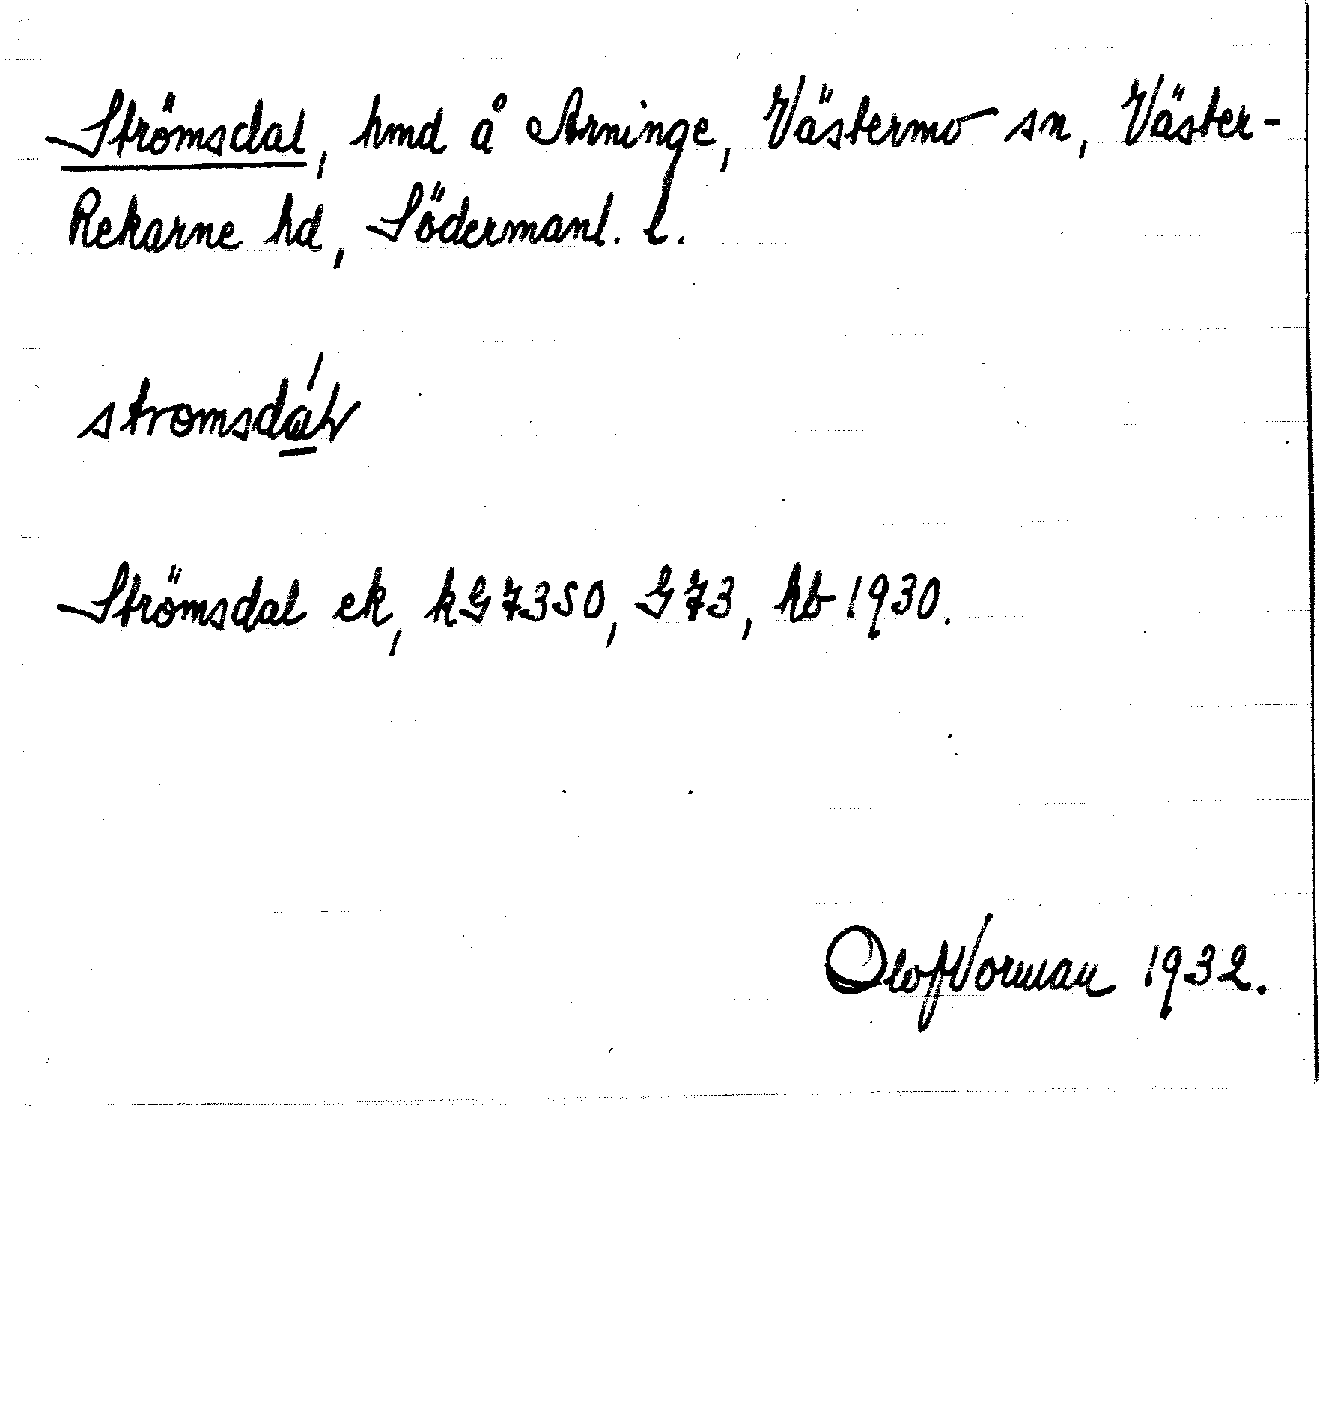 Strömsdal, hmd å Arninge, Västermo sn, Väster-
Rekarne hd, Södermanl. l.
stromsdál
Strömsdal ek, kG7350, G73, hb 1930.
Olof Norman 1932.